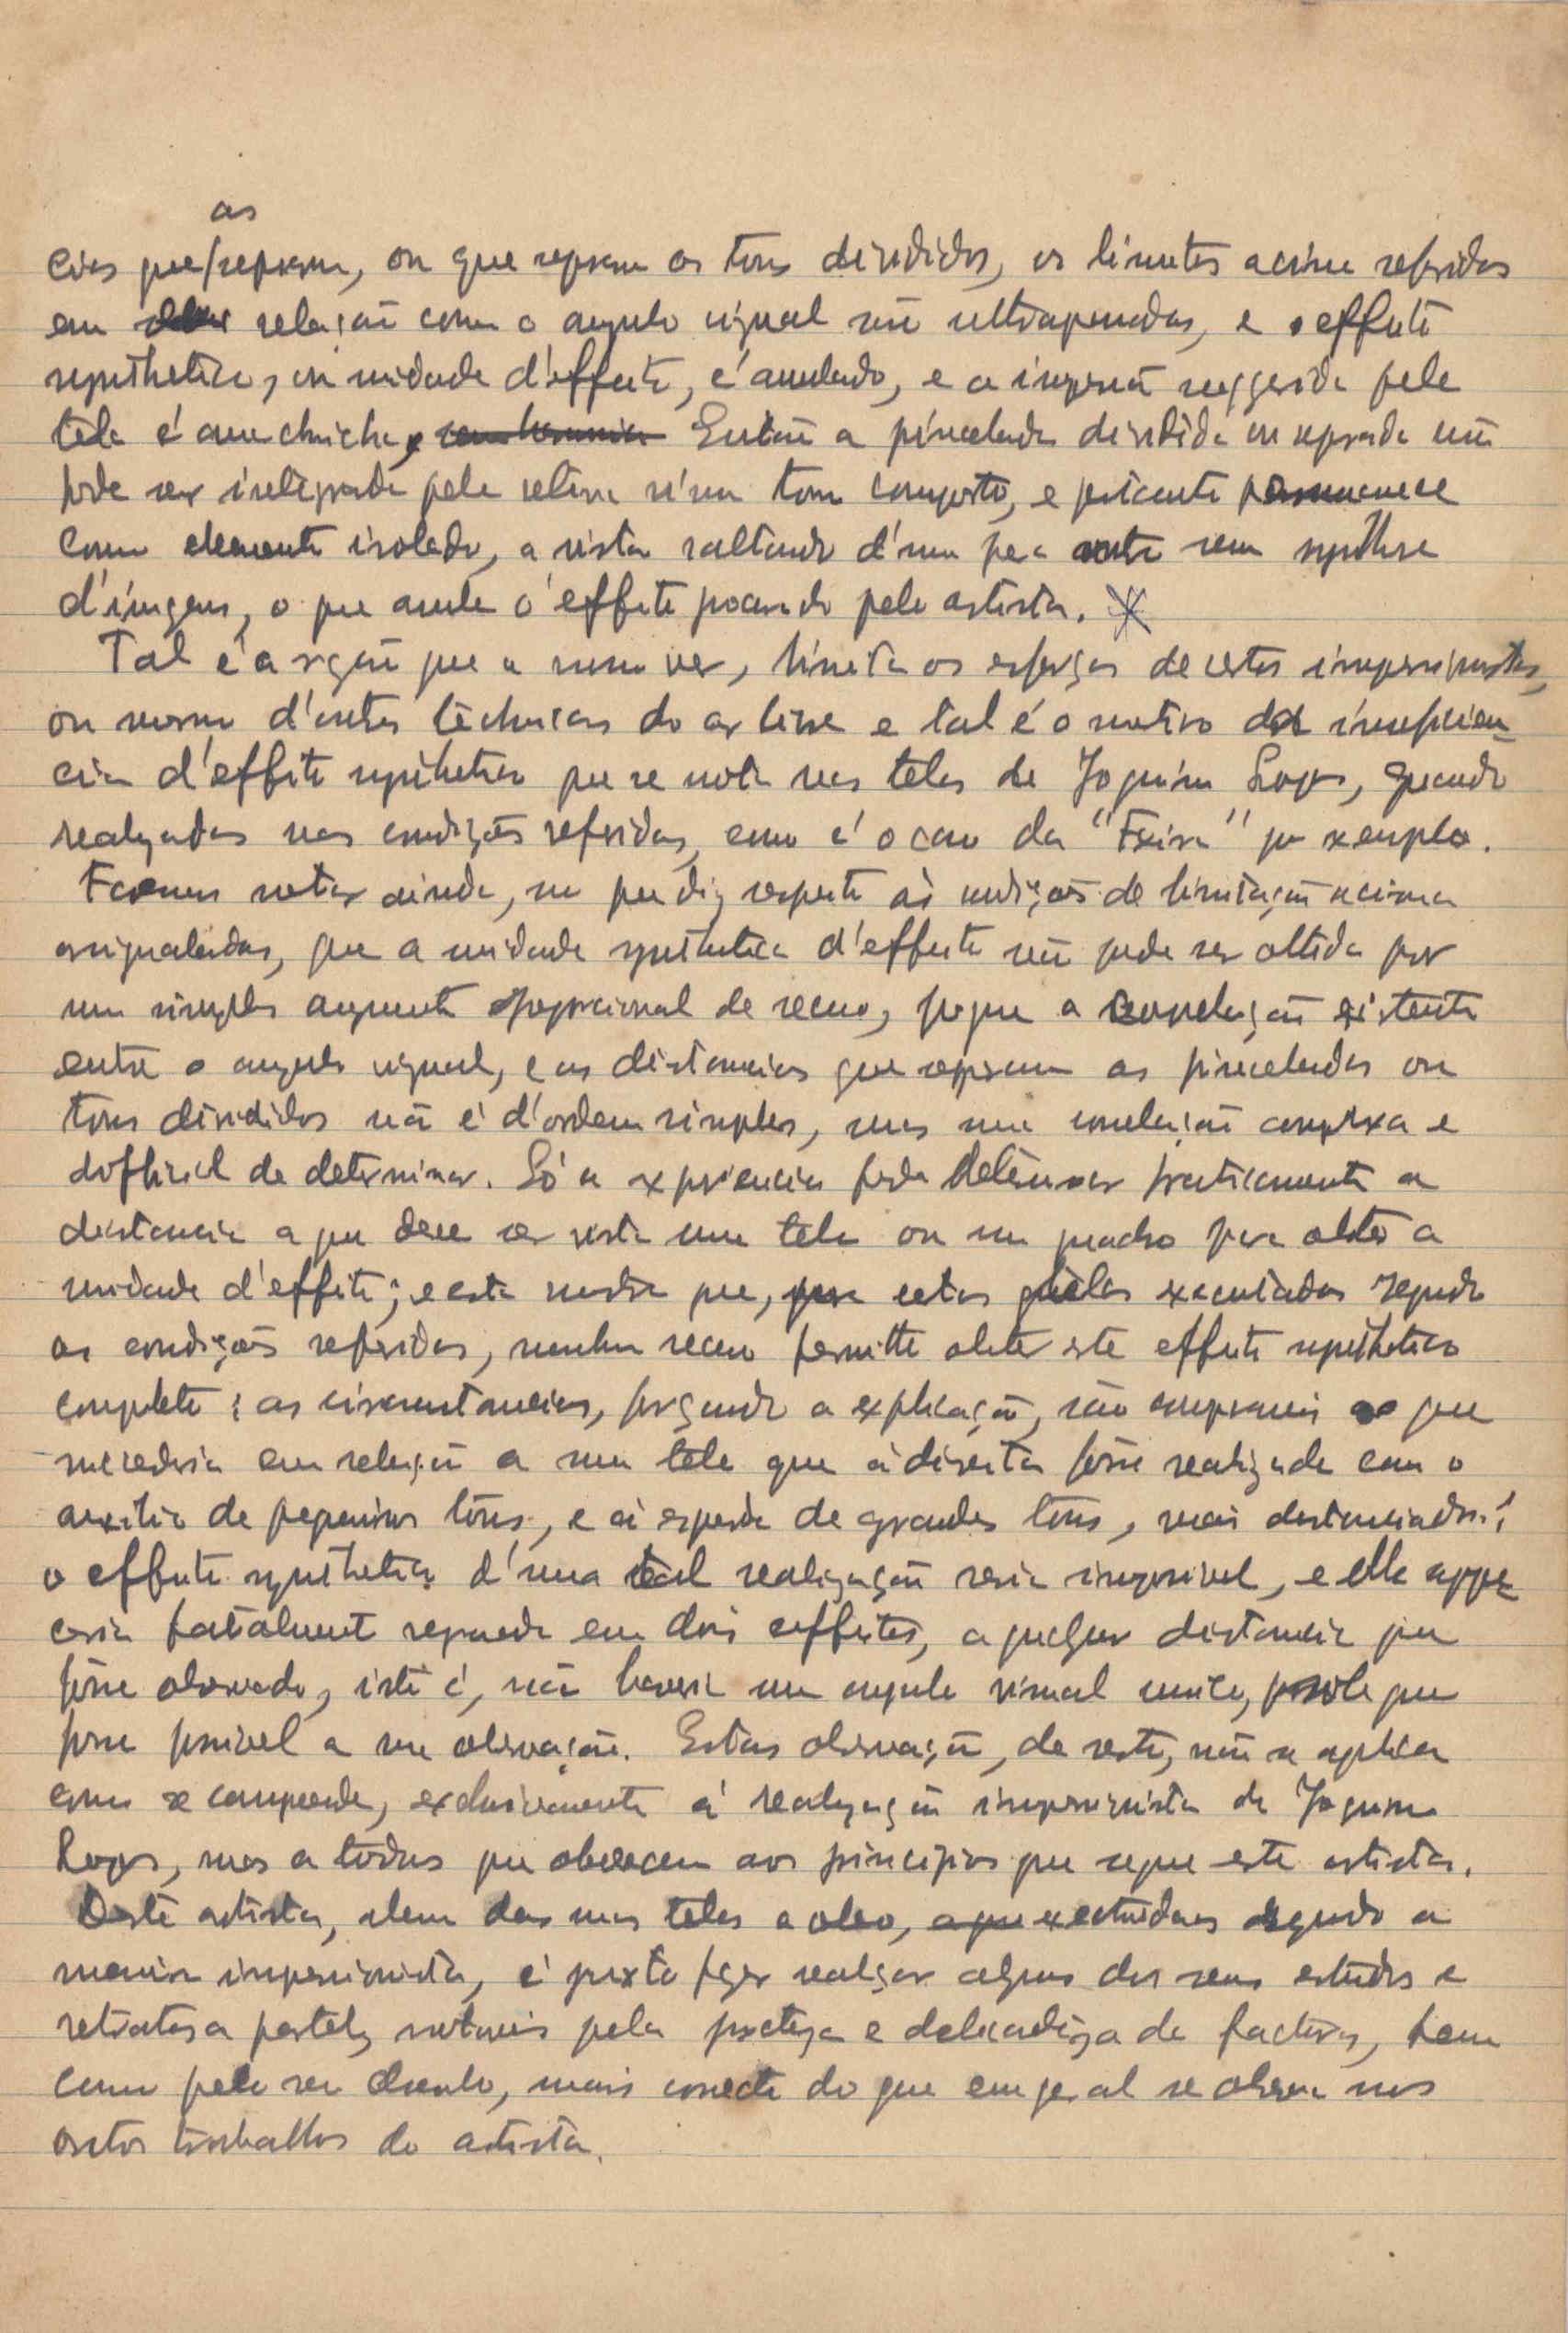 as
cias que separam, ou que separam os tons divididos, os limites acima referidos
em relação com o angulo visual são ultrapassados, e o effeito
synthetico, ou unidade d'effeito, é anulado, e a impressão suggerida pela
tela é anarchicha, sem harmonia Então a pincelada dividida ou separada não
pode ser integrada pela retina n'um tom composto, e portanto permanece
como elemento isolado, a vista saltando d'um para outro sem synthese
d'imagem, o que anula o effeito procurado pelo artista.
Tal é a razão que a nosso ver, limita os esforços de certos impressionistas,
ou mesmo d'outros technicos do ar livre e tal é o motivo da insufficien-
cia d'effeito synthetico que se nota nas telas de Joaquim Lopes, quando
realizadas nas condições referidas, como é o caso da "Feira" por exemplo.
Faremos notar ainda, no que diz respeito ás condições de limitação acima
assignaladas, que a unidade synthetica d'effeito não pode ser obtida por
um simples augmento proporcional de recuo, porque a correlação existente
entre o angulo visual, e as distancias que separam as pinceladas ou
tons divididos não é d'ordem simples, mas uma correlação complexa e
difficil de determinar. Só a experiencia pode determinar praticamente a
distancia a que deve ser vista uma tela ou um quadro para obter a
unidade d'effeito; e esta mostra que, para certas telas executadas segundo
as condições referidas, nenhum recuo permitte obter este effeito synthetico
completo: as circumstancias, forçando a explicação, são comparaveis ao que
succederia em relação a uma tela que á direita fôsse realizada com o
auxilio de pequenos tons, e á esquerda de grandes tons, mais distanciados:
o effeito synthetico d'uma tal realização seria impossivel, e ella appare
ceria fatalmente separada em dois effeitos, a qualquer distancia que
fôsse observada, isto é, não haveria um angulo visual unico, que
fosse possivel a sua observação. Estas observação, de resto, não se aplica
como se comprende, exclusivamente á realização impressionista de Joaquim
Lopes, mas a todos que obedecem aos principios que segue este artista.
Deste artista, alem das suas telas a oleo, executadas segundo a
maneira impressionista, é justo fazer realçar alguns dos seus estudos e
retratos a pastel, notaveis pela justeza e delicadeza de factura, bem
como pelo seu desenho, mais correcto do que em geral se observa nos
outros trabalhos do artista.